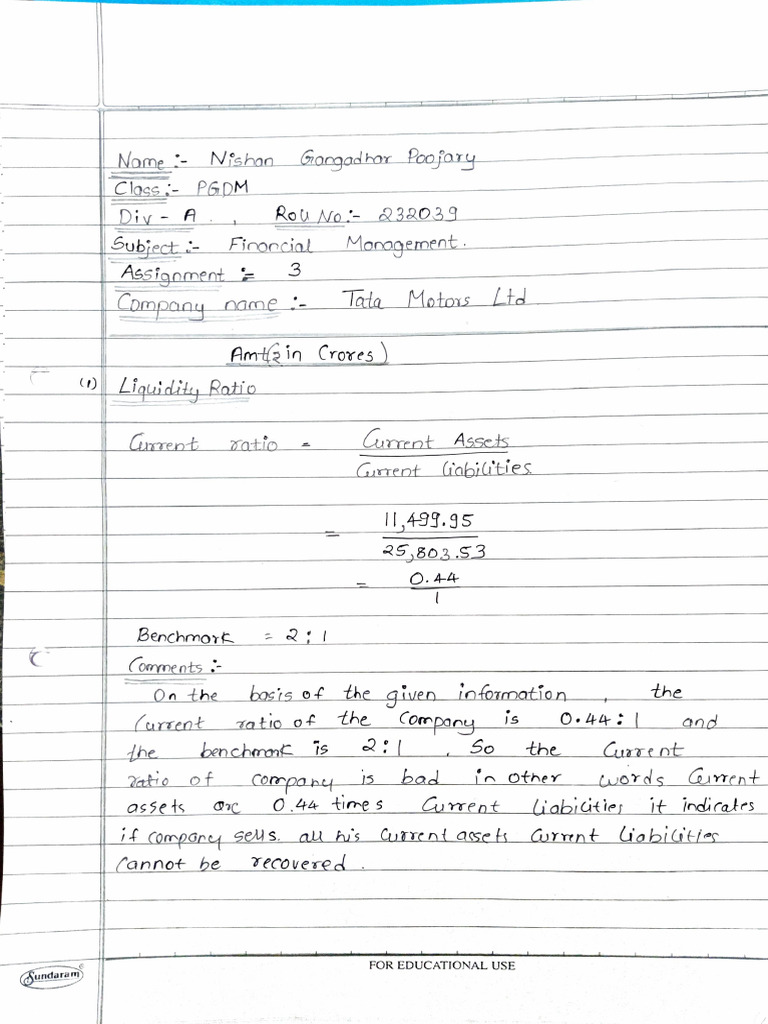 Name :- Nishan Gangadhar Poojary
Class :- PGDM
Div - A . , Roll No :- 232039
Subject :- Financial Management.
Assignment :- 3
Company name :- Tata Motors Ltd
Amt(₹ in Crores)
(1) Liquidity Ratio
Current ratio = Current Assets
Current liabilities
= 11,499.95
25,803.53
= 0.44
1
Benchmark = 2 : 1
Comments :-
On the basis of the given information , the
Current ratio of the company is 0.44 : 1 and
the benchmark is 2 : 1 . So the Current
ratio of company is bad in other words Current
assets are 0.44 times Current liabilities it indicates
if company sells. all his current assets Current liabilities
Cannot be recovered .
Sundaram
FOR EDUCATIONAL USE